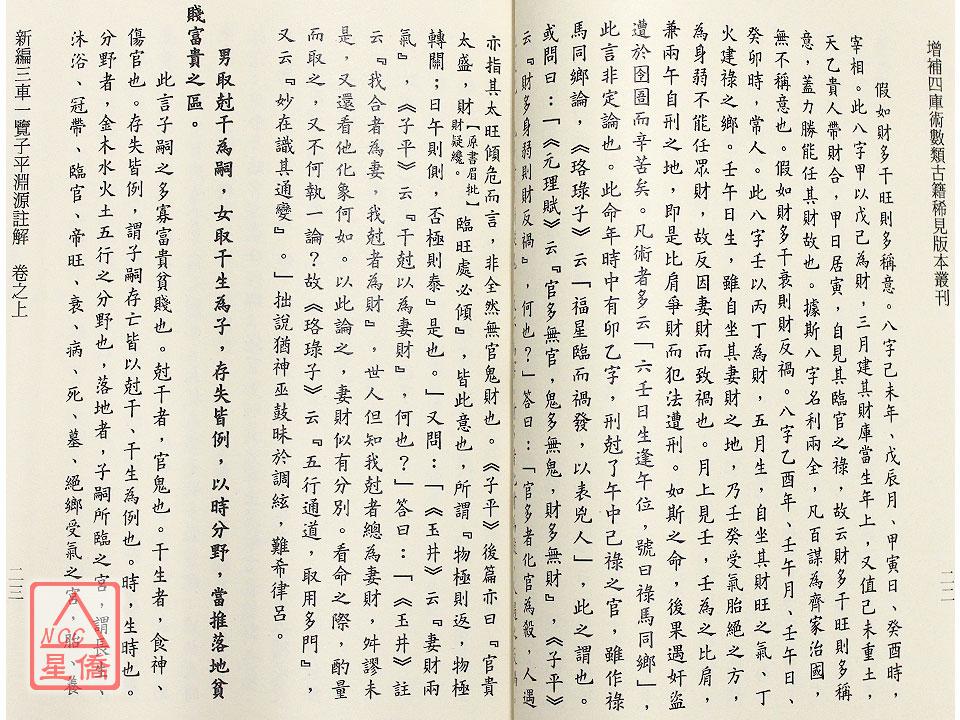 增補四庫術數類古籍稀見版本叢刊
二二
假如財多干旺則多稱意。八字己未年、戊辰月、甲寅日、癸酉時，
宰相。此八字甲以戊己為財，三月建其財庫當生年上，又值己未重土，
天乙貴人帶財合，甲日居寅，自見其臨官之祿，故云財多干旺則多稱
意，蓋力勝能任其財故也。據斯八字名利兩全，凡百謀為齊家治國，
無不稱意也。假如財多干衰則財反禍。八字乙酉年、壬午月、壬午日、
癸卯時，常人。此八字壬以丙丁為財，五月生，自坐其財旺之氣、丁
火建祿之鄉。壬午日生，雖自坐其妻財之地，乃壬癸受氣胎絕之方，
為身弱不能任眾財，故反因妻財而致禍也。月上見壬，壬為之比肩，
兼兩午自刑之地，即是比肩爭財而犯法遭刑。如斯之命，後果遇奸盜
遭於囹圄而辛苦矣。凡術者多云「六壬日生逢午位，號曰祿馬同鄉」，
此言非定論也。此命年時中有卯乙字，刑尅了午中己祿之官，雖作祿
馬同鄉論，《珞琭子》云「福星臨而禍發，以表兇人」，此之謂也。
或問曰：「《元理賦》云『官多無官，鬼多無鬼，財多無財』，《子平》
云『財多身弱則財反禍』，何也？」答曰：「官多者化官為殺，人遇
亦指其太旺傾危而言，非全然無官鬼財也。《子平》後篇亦曰『官貴
太盛，財【原書眉批】財疑纔。臨旺處必傾』，皆此意也，所謂『物極則返，物極
轉關；日午則側，否極則泰』是也。」又問：「《玉井》云『妻財兩
氣』，《子平》云『干尅以為妻財』，何也？」答曰：「《玉井》註
云『我合者為妻，我尅者為財』，世人但知我尅者總為妻財，舛謬未
是，又還看他化象何如。以此論之，妻財似有分別。看命之際，酌量
而取之，又不何執一論？故《珞琭子》云『五行通道，取用多門』，
又云『妙在識其通變』。」拙說猶神巫鼓昧於調絃，難希律呂。
男取尅干為嗣，女取干生為子，存失皆例，以時分野，當推落地貧
賤富貴之區。
此言子嗣之多寡富貴貧賤也。尅干者，官鬼也。干生者，食神、
傷官也。存失皆例，謂子嗣存亡皆以尅干、干生為例也。時，生時也。
分野者，金木水火土五行之分野也，落地者，子嗣所臨之宮，謂長生、
沐浴、冠帶、臨官、帝旺、衰、病、死、墓、絕鄉受氣之宮，胎、養
新編三車一覽子平淵源註解　卷之上
二三
NCC
星僑